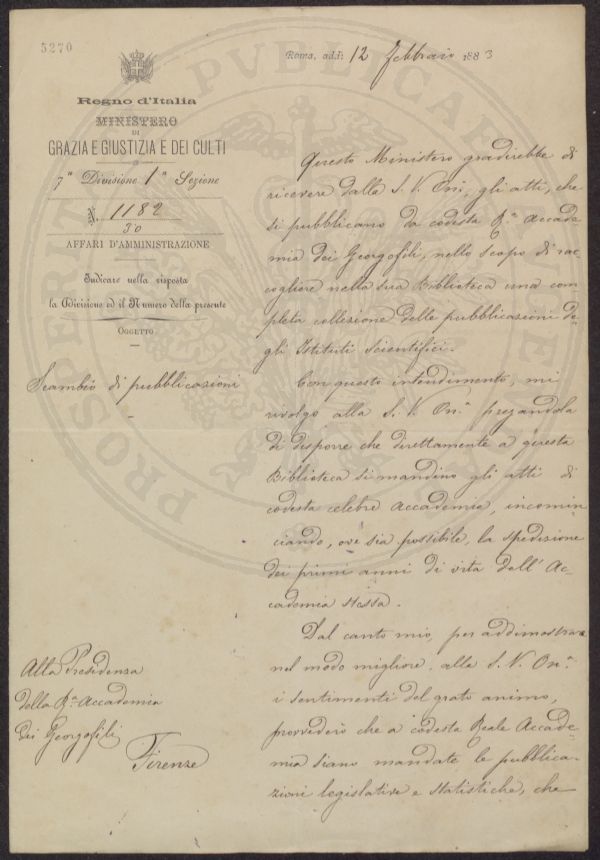 5270
Roma, addì 12 Febbraio 1883
Regno d'Italia
MINISTERO
DI
GRAZIA E GIUSTIZIA E DEI CULTI
7ª Divisione 1ª Sezione
N. 1182
30
AFFARI D'AMMINISTRAZIONE
Indicare nella risposta
la Divisione ed il Numero della presente
OGGETTO
Scambio di pubblicazioni
Questo Ministero gradirebbe di
ricevere dalla S. V. On. gli atti, che
si pubblicano da codesta Rª Accade-
mia dei Georgofili, nello scopo di rac-
cogliere nella sua Biblioteca una com
pleta collezione delle pubblicazioni de-
gli Istituti Scientifici.
Con questo intendimento, mi
rivolgo alla S. V. On. pregandola
di disporre che direttamente a questa
Biblioteca si mandino gli atti di
codesta celebre Accademia, incomin
ciando, ove sia possibile, la spedizione
dei primi anni di vita dell'Ac-
cademia stessa.
Dal canto mio, per addimostrare
nel modo migliore alla S. V. On.
i sentimenti del grato animo,
provvederò che a codesta Reale Accade-
mia siano mandate le pubblica-
zioni legislative e statistiche, che
Alla Presidenza
della Rª Accademia
dei Georgofili
Firenze
PROSPERITATI PVBLICAE AVGENDAE